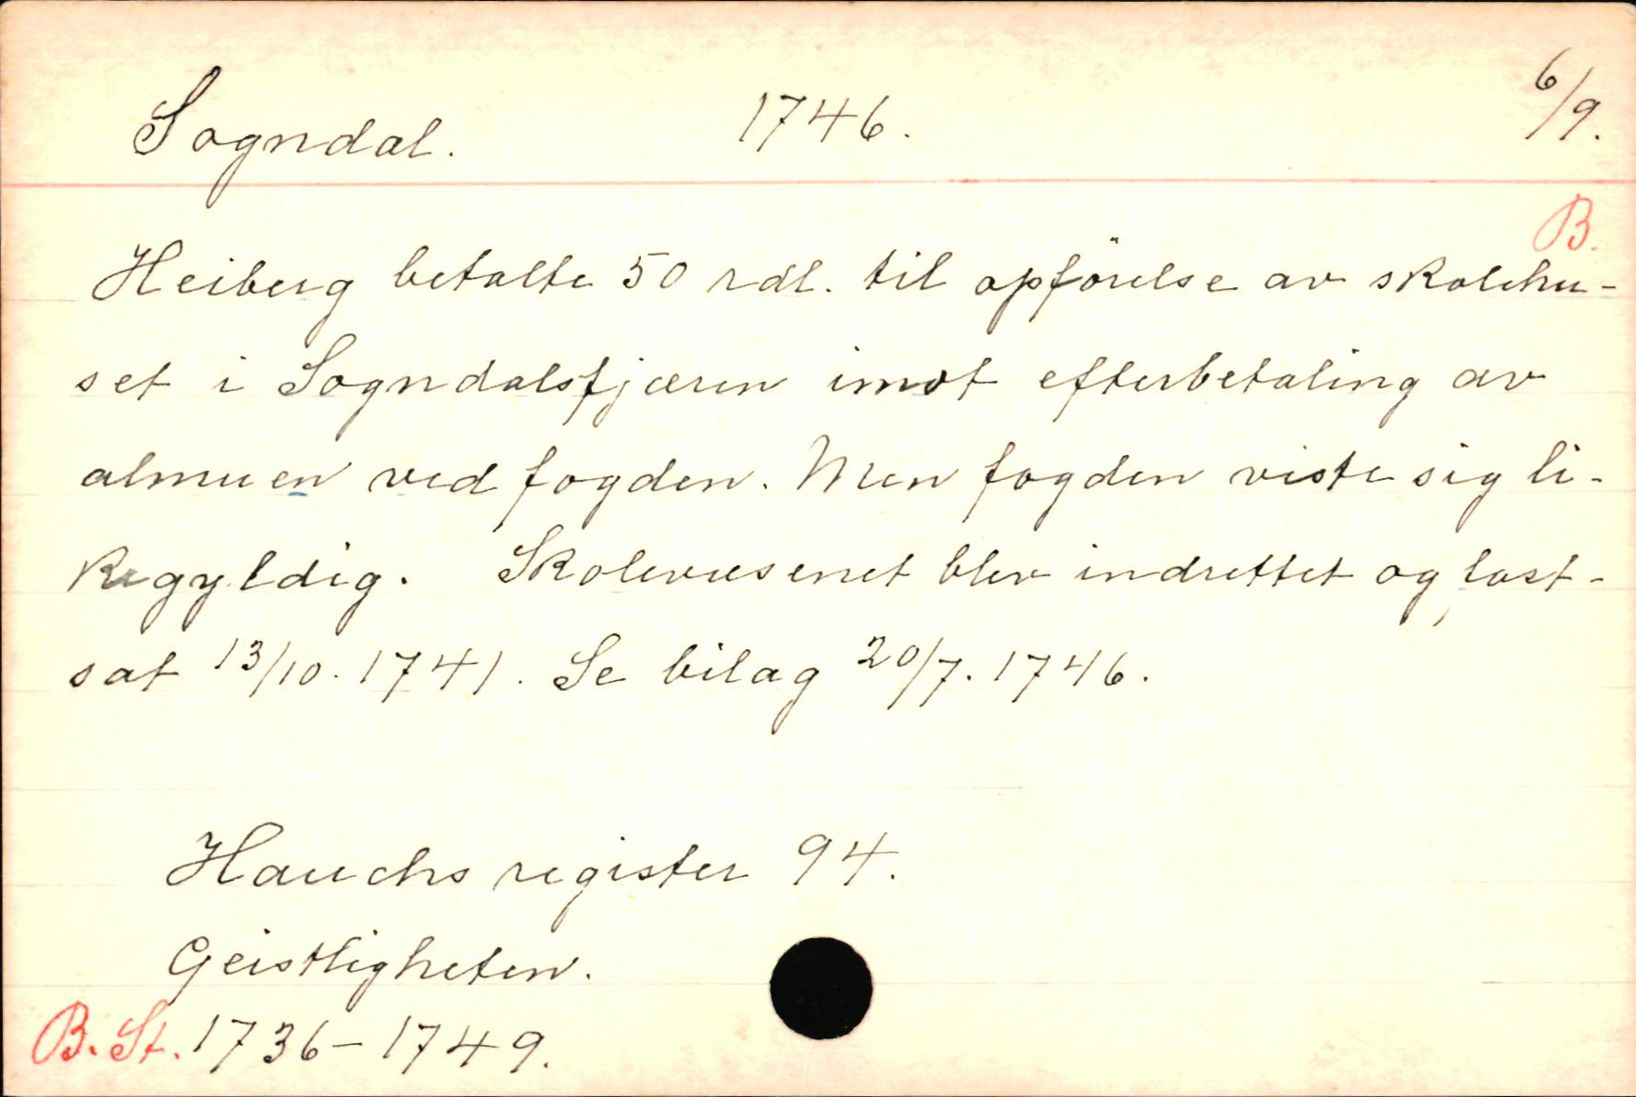 Sogndal. 1746. 6/9.
B.
Heiberg betalte 50 rdl. til opførelse av skolehu-
set i Sogndalsfjæren imot efterbetaling av
almuen ved fogden. Men fogden viste sig li-
kegyldig. Skolevæsenet blev indrettet og fast-
sat 13/10. 1741. Se bilag 20/7. 1746.
Hauchs register 94.
Geistligheten.
B. St. 1736-1749.